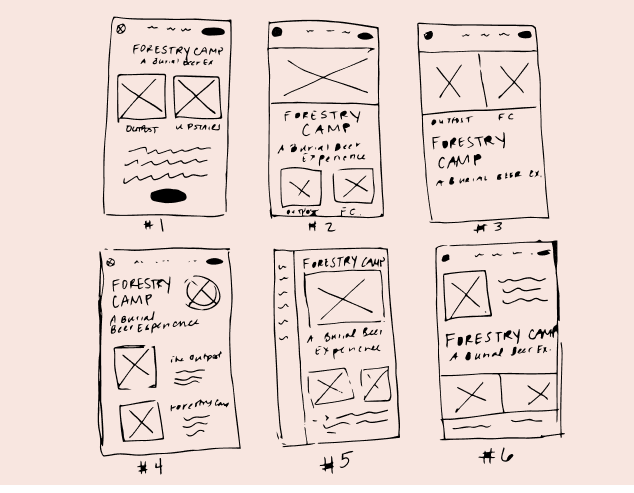 FORESTRY CAMP
A Burial Beer Ex
OUTPOST UPSTAIRS
#1
FORESTRY
CAMP
A Burial Beer
Experience
OUTPOST F.C.
#2
OUTPOST FC
FORESTRY
CAMP
A BURIAL BEER EX.
#3
FORESTRY
CAMP
A Burial
Beer Experience
The Outpost
Forestry Camp
#4
FORESTRY CAMP
A Burial Beer
Experience
#5
FORESTRY CAMP
A Burial Beer Ex.
#6